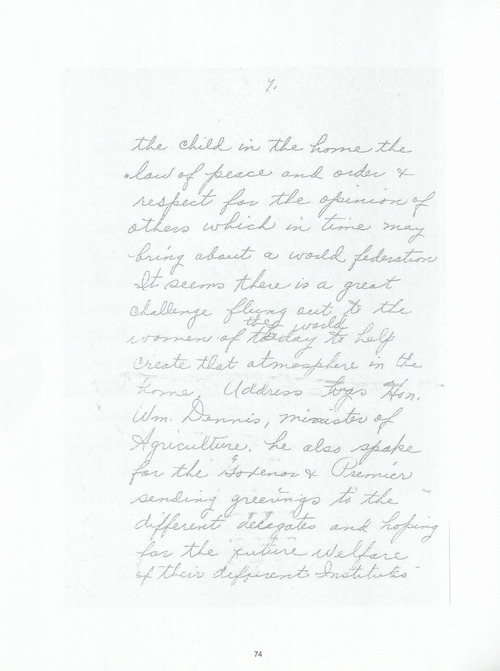 7.
the child in the home the
law of peace and order &
respect for the opinion of
others which in time may
bring about a world federation
It seems there is a great
challenge flung out to the
the world
women of today to help
create that atmosphere in the
home. Address by Hon.
Wm. Dennis, minister of
Agriculture. he also spoke
for the Govenor & Premier
sending greetings to the
different delegates and hoping
for the future welfare
of their different Institutes
74